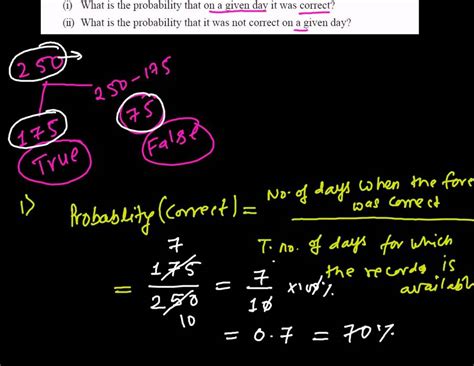 (i) What is the probability that on a given day it was correct?
(ii) What is the probability that it was not correct on a given day?
250
250-175
175
75
True
False
i)
Probablity (correct) = No. of days when the fore
was correct
T. no. of days for which
the records is
available
7
= 175 = 7 ×100%
250 10
10
= 0.7 = 70%